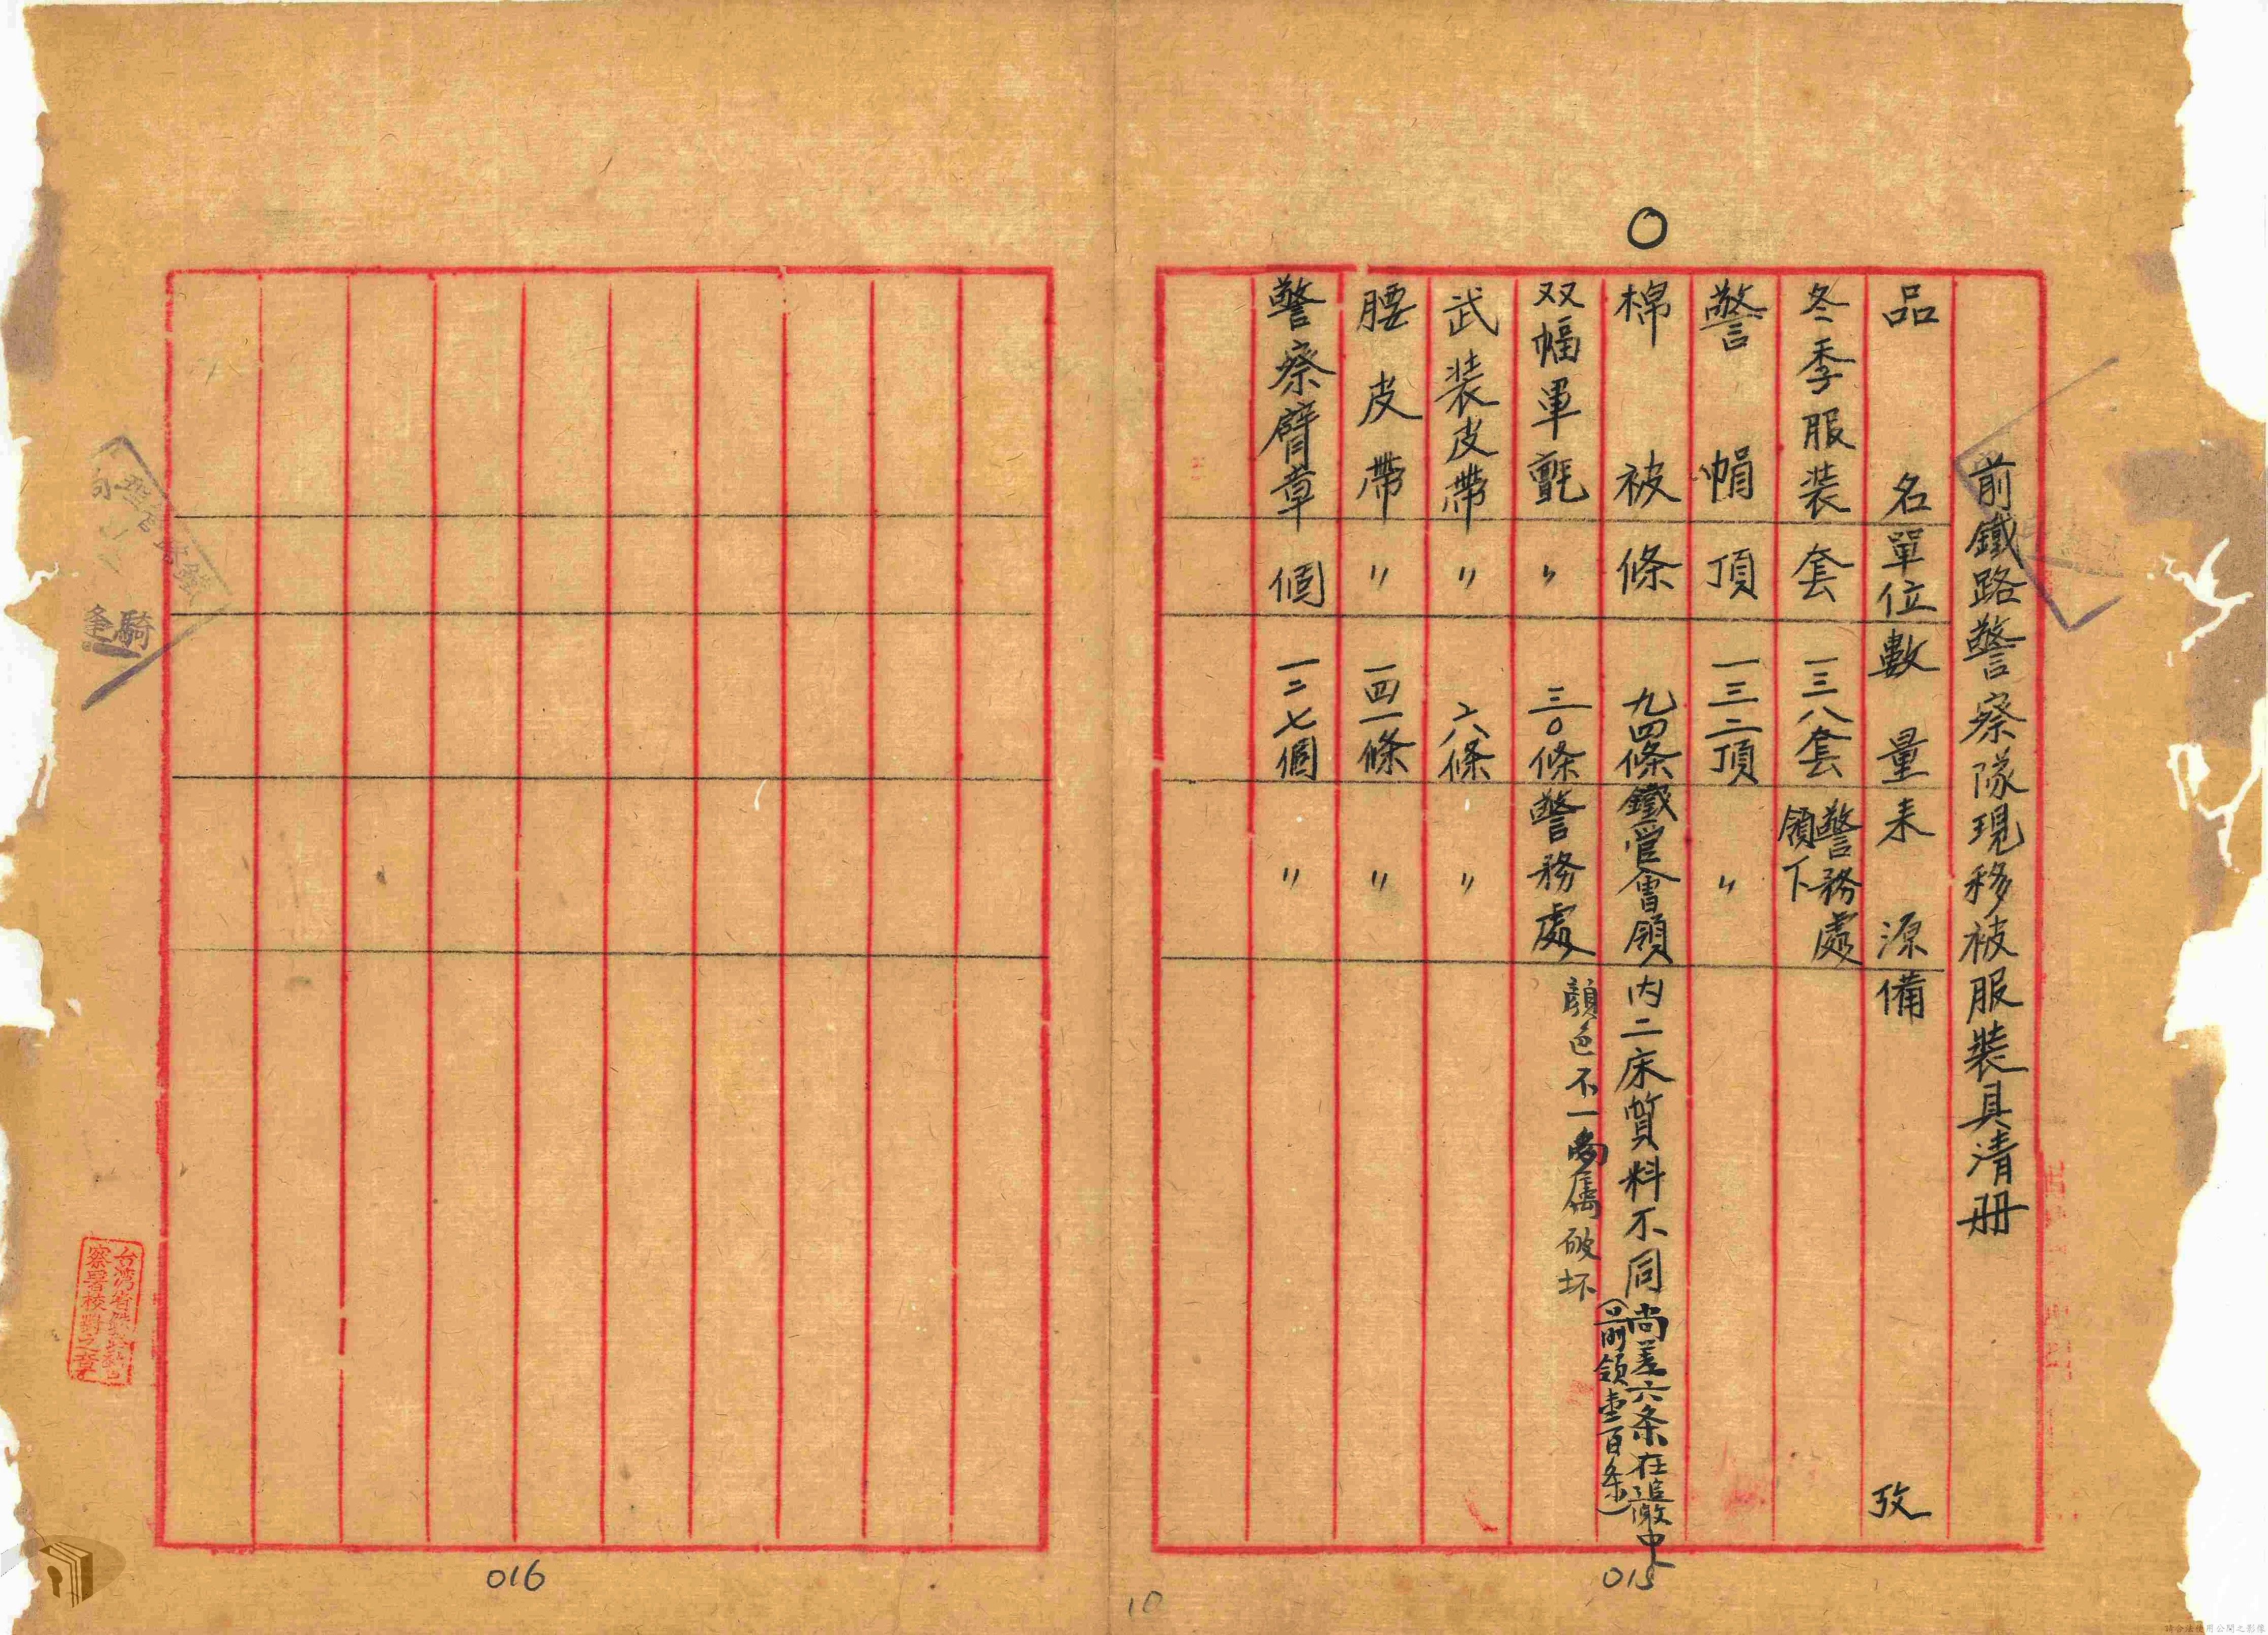 前鐵路警察隊現移被服裝具清册
品名 單位 數量 耒源 備攷
冬季服装 套 一三八套 警務處領下
警帽 頂 一三二頂 〃
○
棉被 條 九四條 鐵管會領 内二床質料不同 尚差六条在追繳中(前領壹百条)
双幅軍氈 〃 三〇條 警務處 顔色不一多屬破坏
武装皮帶 〃 六條 〃
腰皮帶 〃 一四一條 〃
警察臂章 個 一二七個 〃
015
10
騎
逢
台湾省鉄路警
察署校對之章
016
請合法使用公開之影像